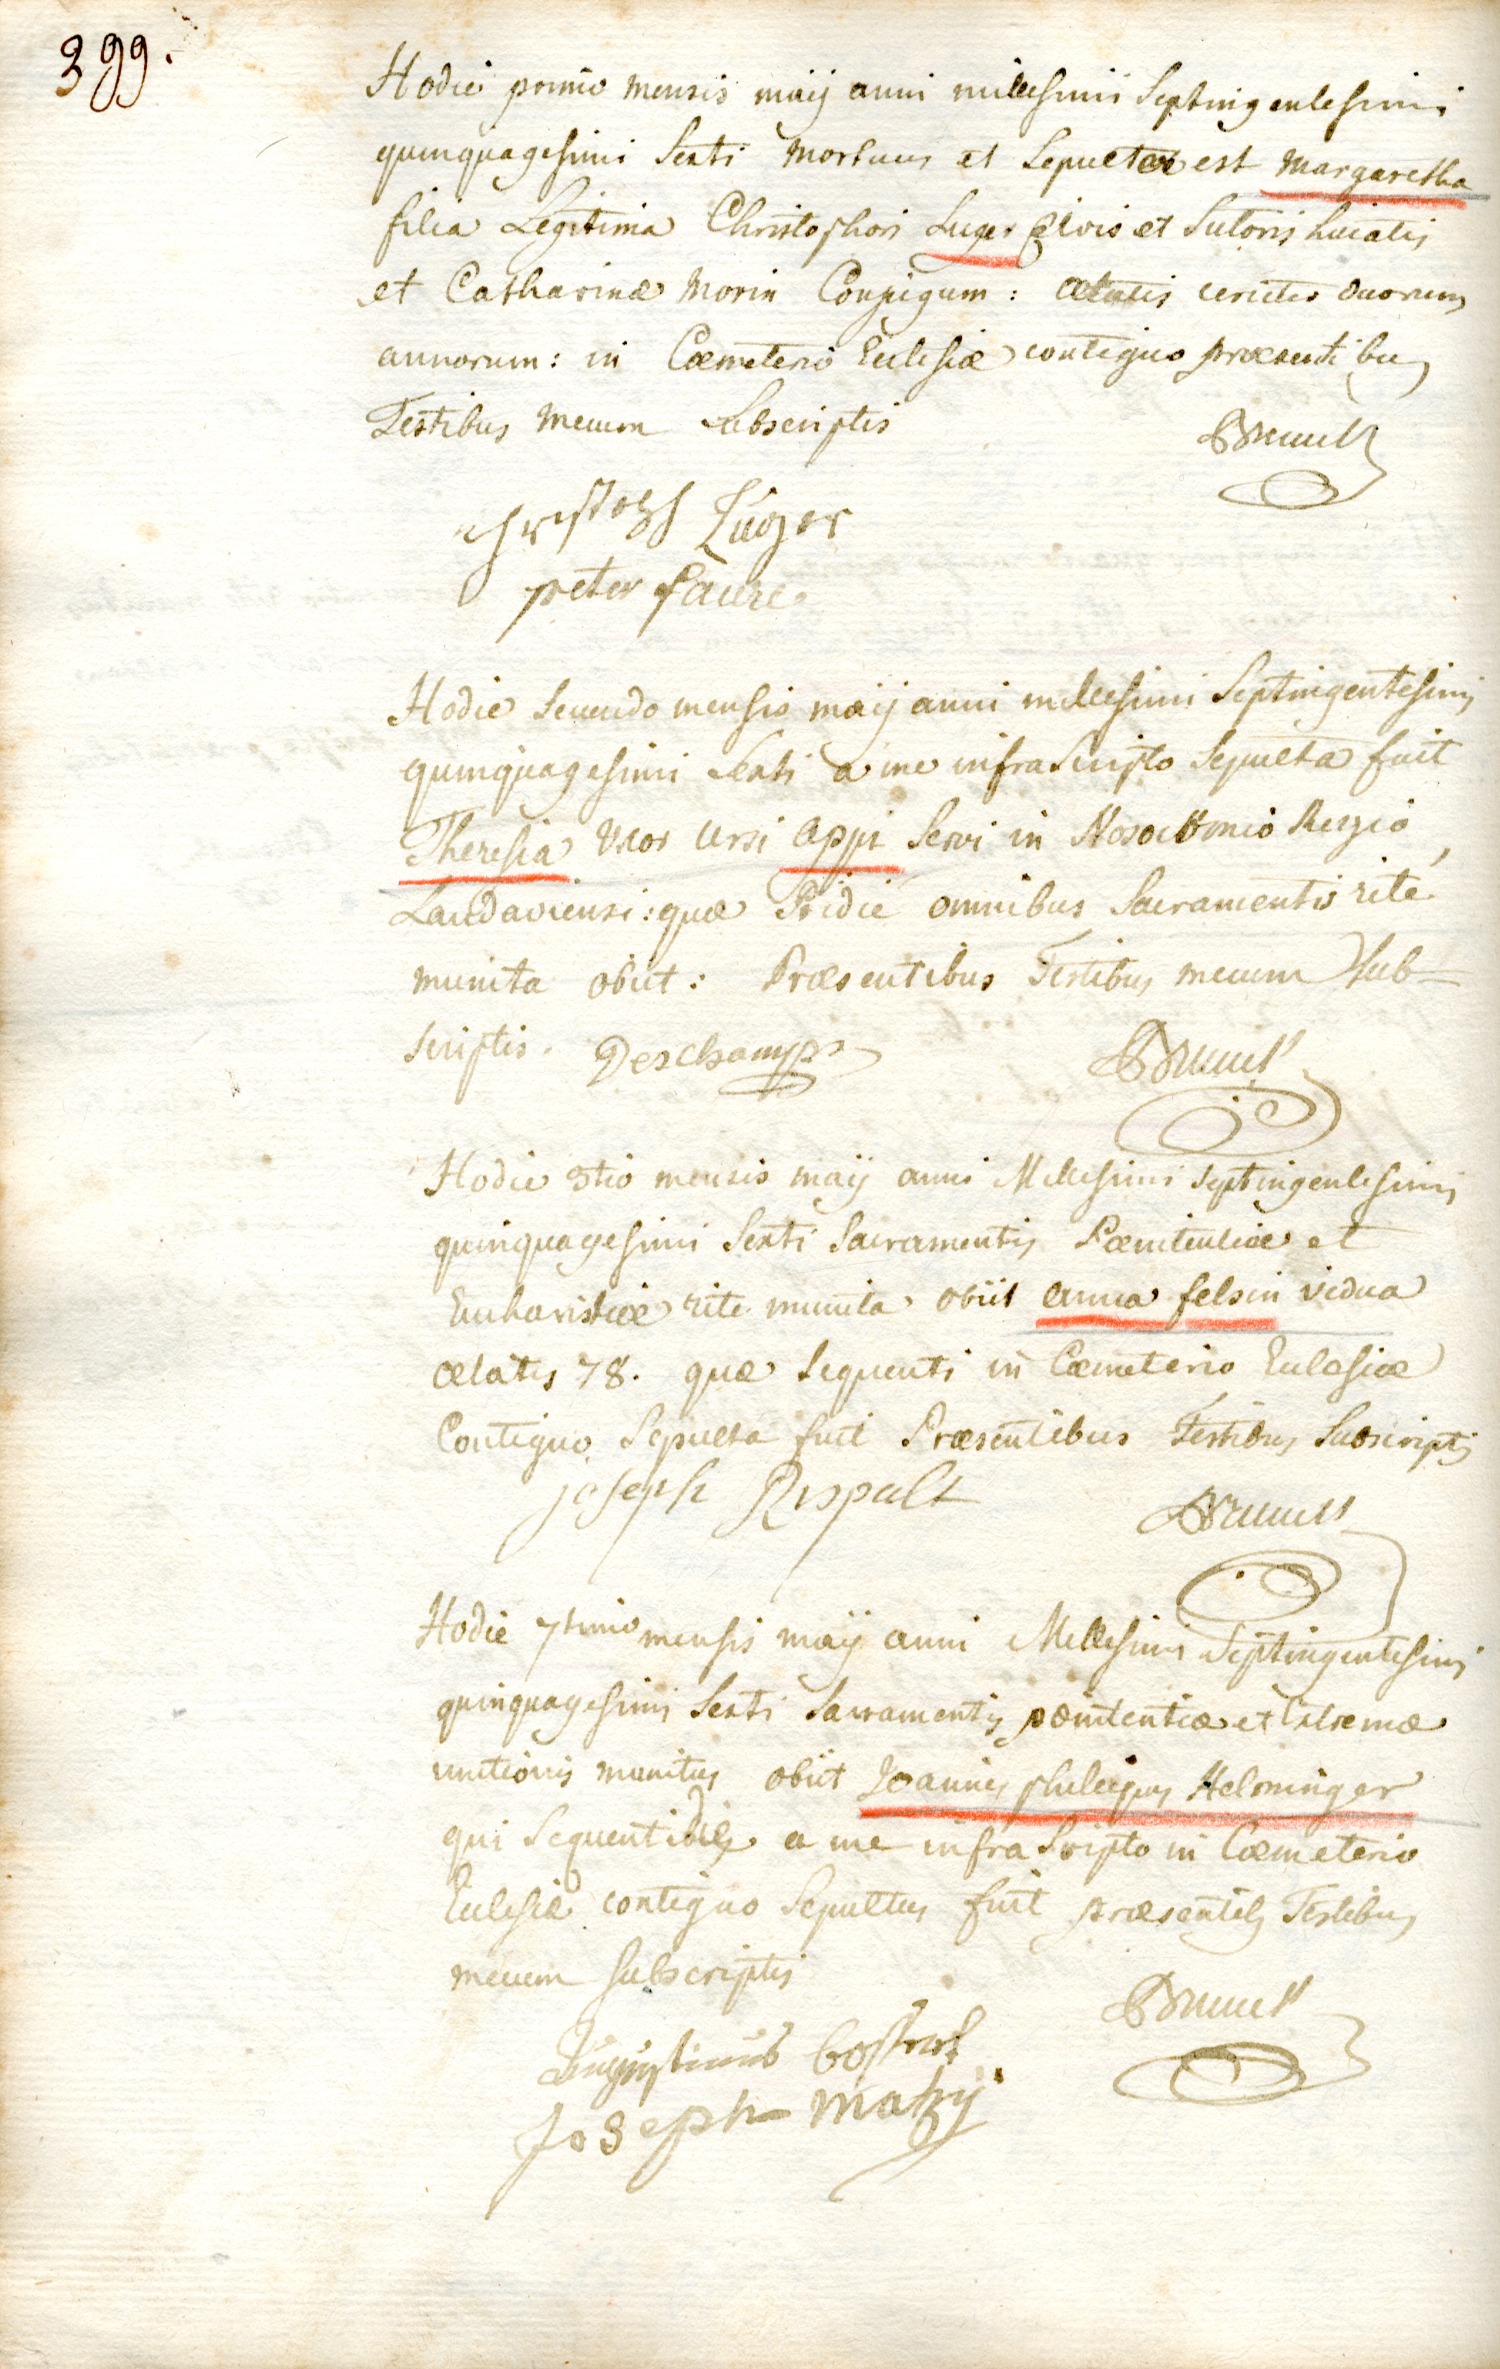 399.
Hodie primo mensis maij anni millesimi Septingentesimi
quinquagesimi Sexti mortuus et Sepulta est Margaretha
filia Legitima Christophori Luger Civis et Sutoris hujatis
et Catharinæ Morin Conjugum: ætatis circiter duorum
annorum: in Cœmeterio Ecclesiæ contiguo præsentibus
Testibus mecum Subscriptis
Brunck
christoph Lúger
peter faure
Hodie Secundo mensis maij anni millesimi Septingentesimi
quinquagesimi Sexti a me infra Scripto Sepulta fuit
Theresia Uxor Ursi Appi Servi in Nosocomio Regio
Landaviensi: quæ Pridie omnibus Sacramentis rité
munita obiit: Præsentibus Testibus mecum Sub-
scriptis. Deschamps
Brunck
Hodie 3tio mensis maij anni Millesimi Septingentesimi
quinquagesimi Sexti Sacramentis Pœnitentiæ et
Eucharistiæ rite munita obiit anna felsin vidua
ætatis 78. quæ Sequenti in Cœmeterio Ecclesiæ
Contiguo Sepulta fuit Præsentibus Testibus Subscriptis
joseph Rispalt
Brunck
Hodie 7timo mensis maij anni Millesimi Septingentesimi
quinquagesimi Sexti Sacramentis pœnitentiæ et Extremæ
unctionis munitus obiit Joannes philippus Helminger
qui Sequenti die a me infra Scripto in Cœmeterio
Ecclesiæ contiguo Sepultus fuit præsentib Testibus
mecum Subscriptis
Brunck
Augustinus
Joseph matzÿ